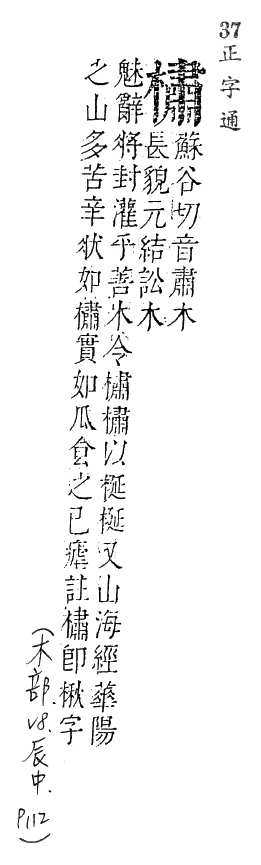 37正字通
橚
蘇谷切音肅木
長貌元結訟木
魅辭將封灌乎善木令橚橚以梴梴又山海經華陽
之山多苦辛狀如橚實如瓜食之已瘧註橚卽楸字
(木部.V8.辰中.P112)